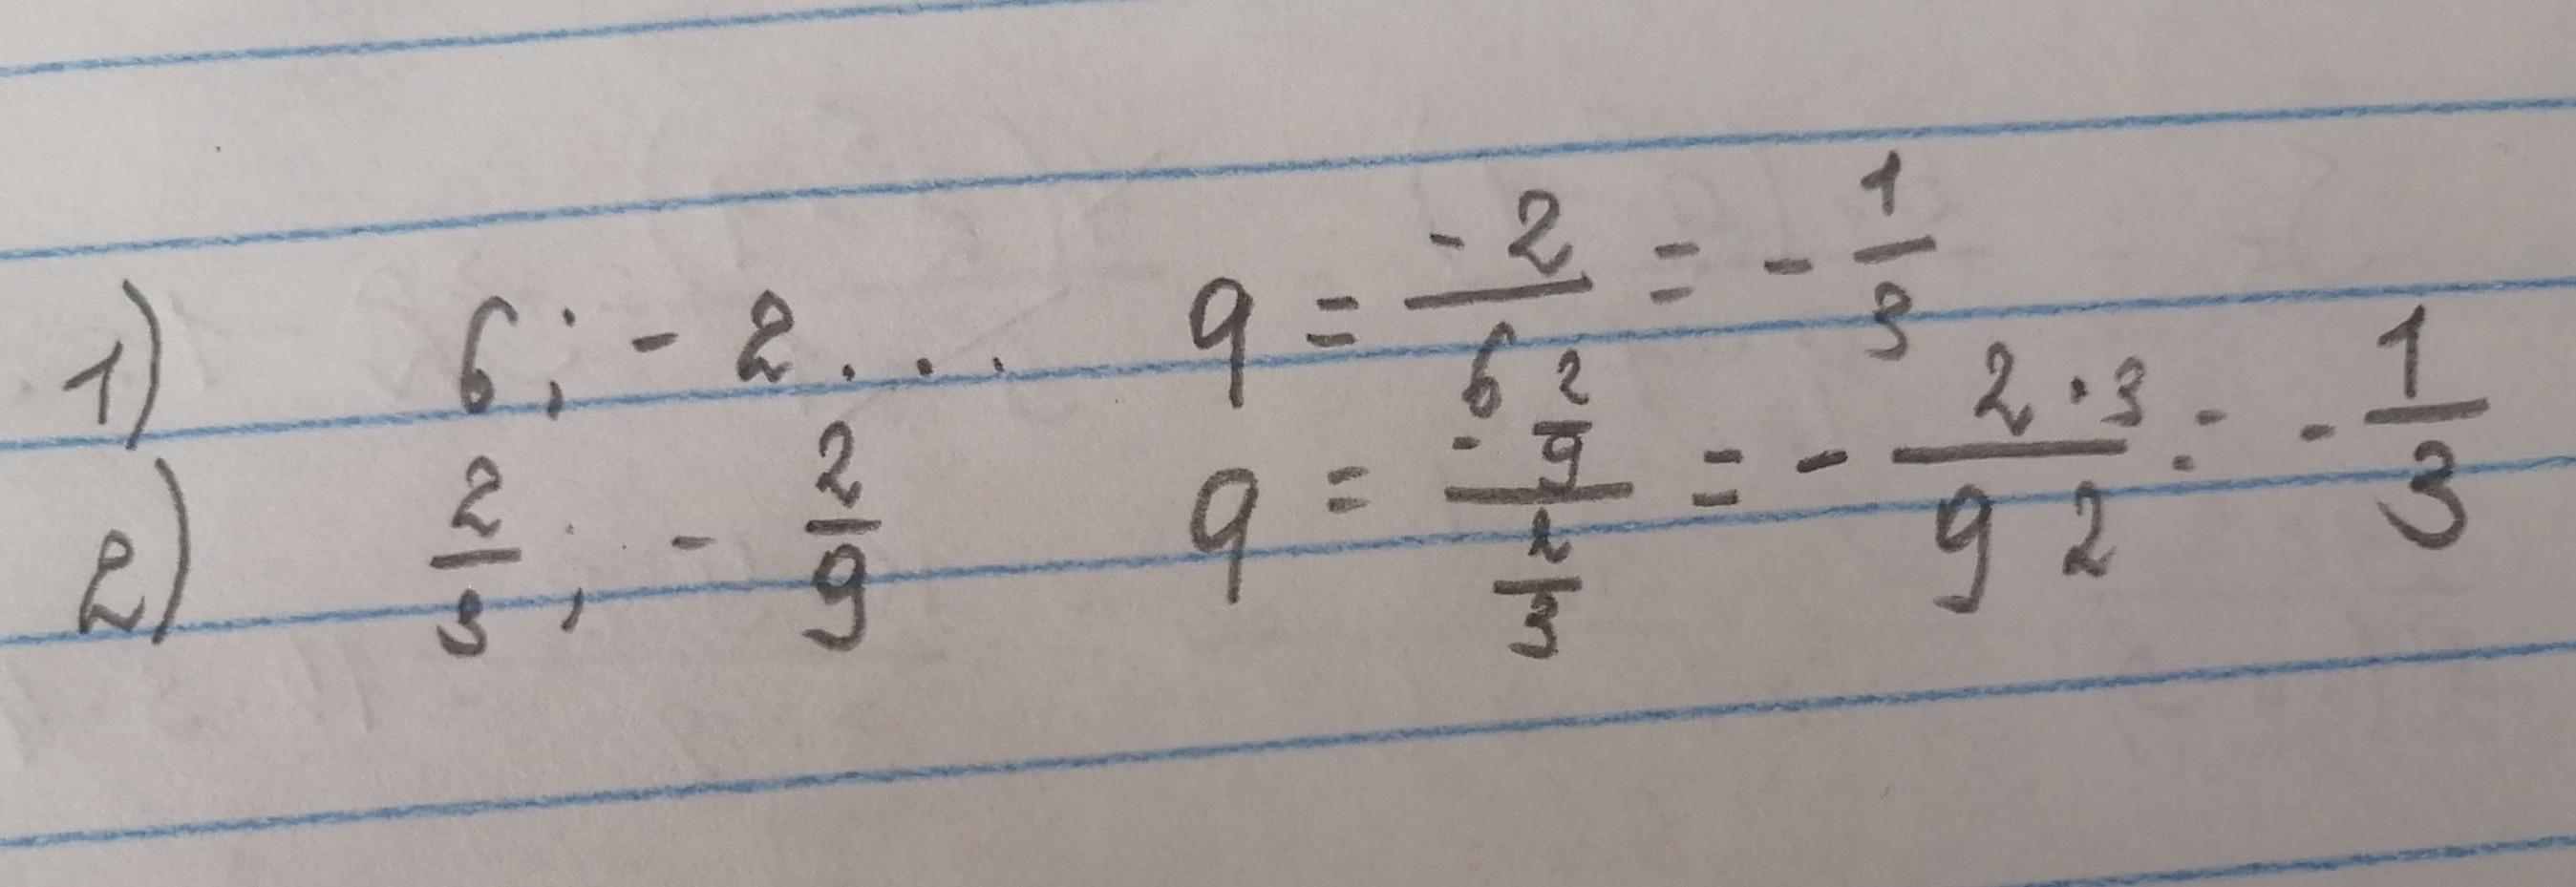 1) 6; -2... q = -2/6 = -1/3
2) 2/3; -2/9 q = (-2/9)/(2/3) = - (2·3)/(9 2) = -1/3